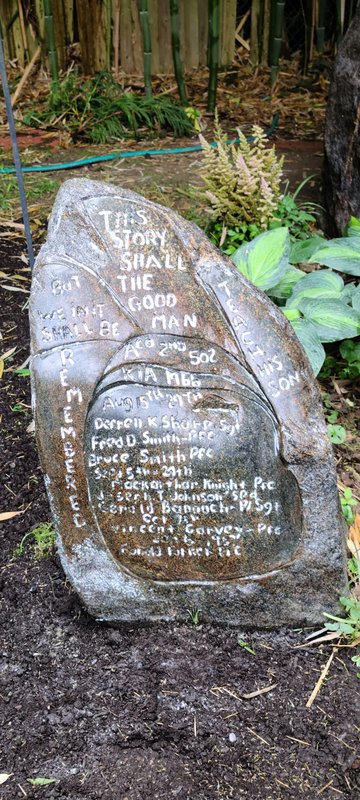 THIS
STORY
SHALL
THE
GOOD
MAN
TEACH HIS
SON
BUT
WE IN IT
SHALL BE
REMEMBERED
ACO 2ND 502
KIA
Aug 15th 29th
Derrell K Sharp-Sgt
Fred D. Smith-PFC
Bruce Smith PFC
Sept 5th-29th
Mackarthar Knight Pfc
Joseph T Johnson SP4
Gerald Bananch-P/Sgt
Oct
Vincent Garvey-Pfc